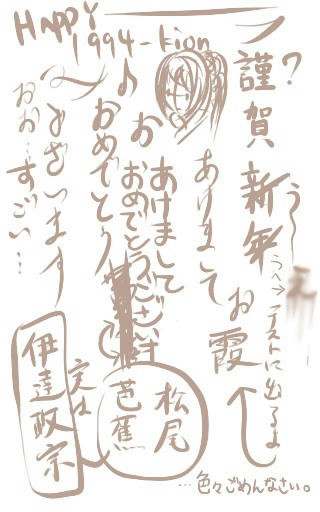 Happy
1994-kion
謹賀新年?
う〜
うへ→
テストに出るよ
あけましてお霞
お
あけまして
おめでとうござい
おめでとう
ございます
おお…すごい…
松尾
芭蕉
実は
伊達政宗
…色々ごめんなさい。